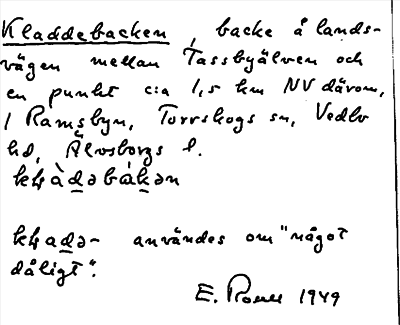 Kladdebacken, backe å lands-
vägen mellan Tassbyälven och
en punkt c:a 1,5 km NV därom,
i Ramsbyn, Torrskogs sn, Vedbo
hd, Älvsborgs l.
kḷàdəbákən
kḷadə- användes om "något
dåligt".
E. 1949